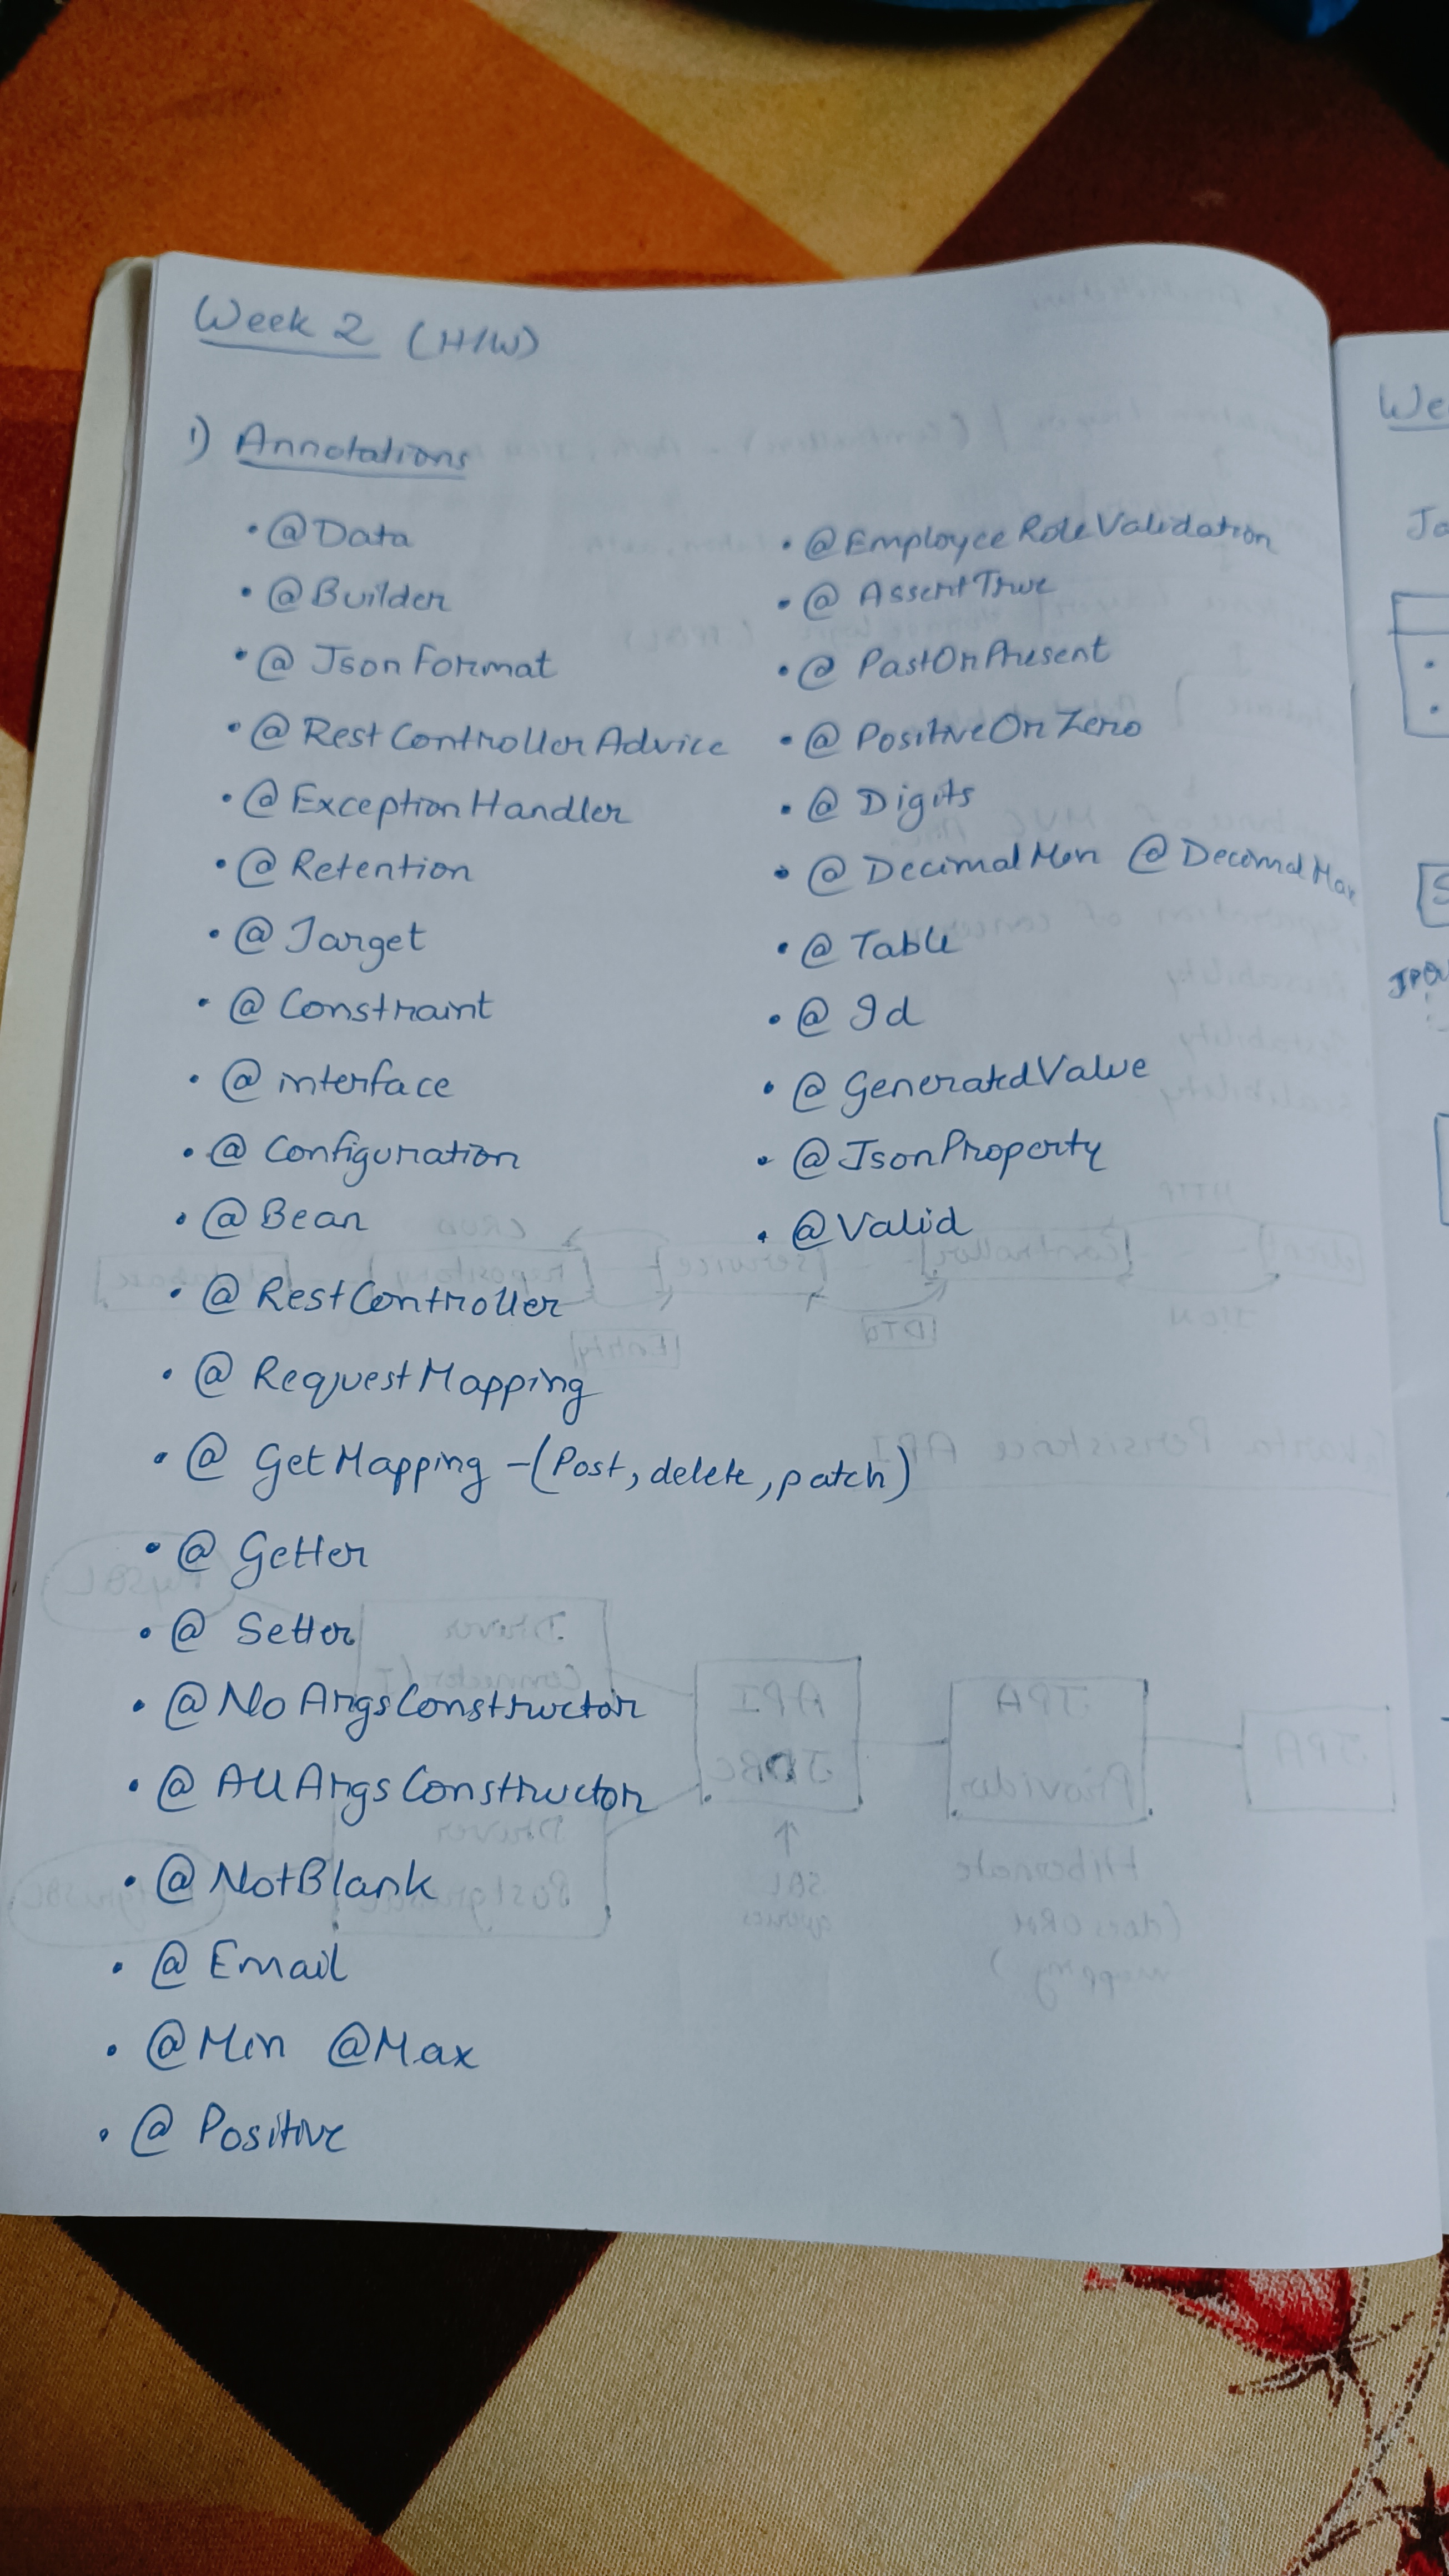 Week 2 (H/W)
1) Annotations
• @Data
• @Builder
• @JsonFormat
• @RestControllerAdvice
• @ExceptionHandler
• @Retention
• @Target
• @Constraint
• @interface
• @Configuration
• @Bean
• @RestController
• @RequestMapping
• @GetMapping - (Post, delete, patch)
• @Getter
• @Setter
• @NoArgsConstructor
• @AllArgsConstructor
• @NotBlank
• @Email
• @Min @Max
• @Positive
• @EmployeeRoleValidation
• @AssertTrue
• @PastOrPresent
• @PositiveOrZero
• @Digits
• @DecimalMin @DecimalMax
• @Table
• @Id
• @GeneratedValue
• @JsonProperty
• @Valid
We